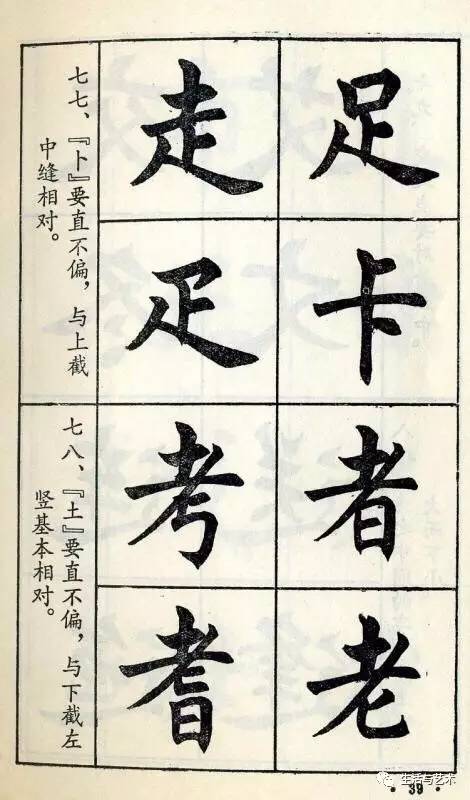 足卡
走疋
七七、『卜』要直不偏，与上截
中缝相对。
者老
考耆
七八、『土』要直不偏，与下截左
竖基本相对。
生活与艺术
·39·